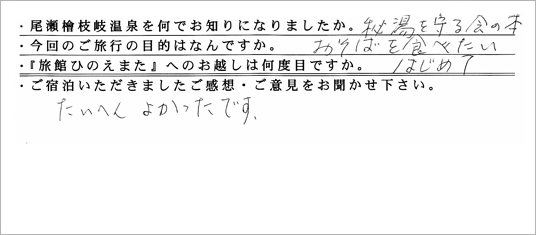 ・尾瀬檜枝岐温泉を何でお知りになりましたか。秘湯を守る会の本
・今回のご旅行の目的はなんですか。おそばを食べたい
・『旅館ひのえまた』へのお越しは何度目ですか。はじめて
・ご宿泊いただきましたご感想・ご意見をお聞かせ下さい。
たいへんよかったです、